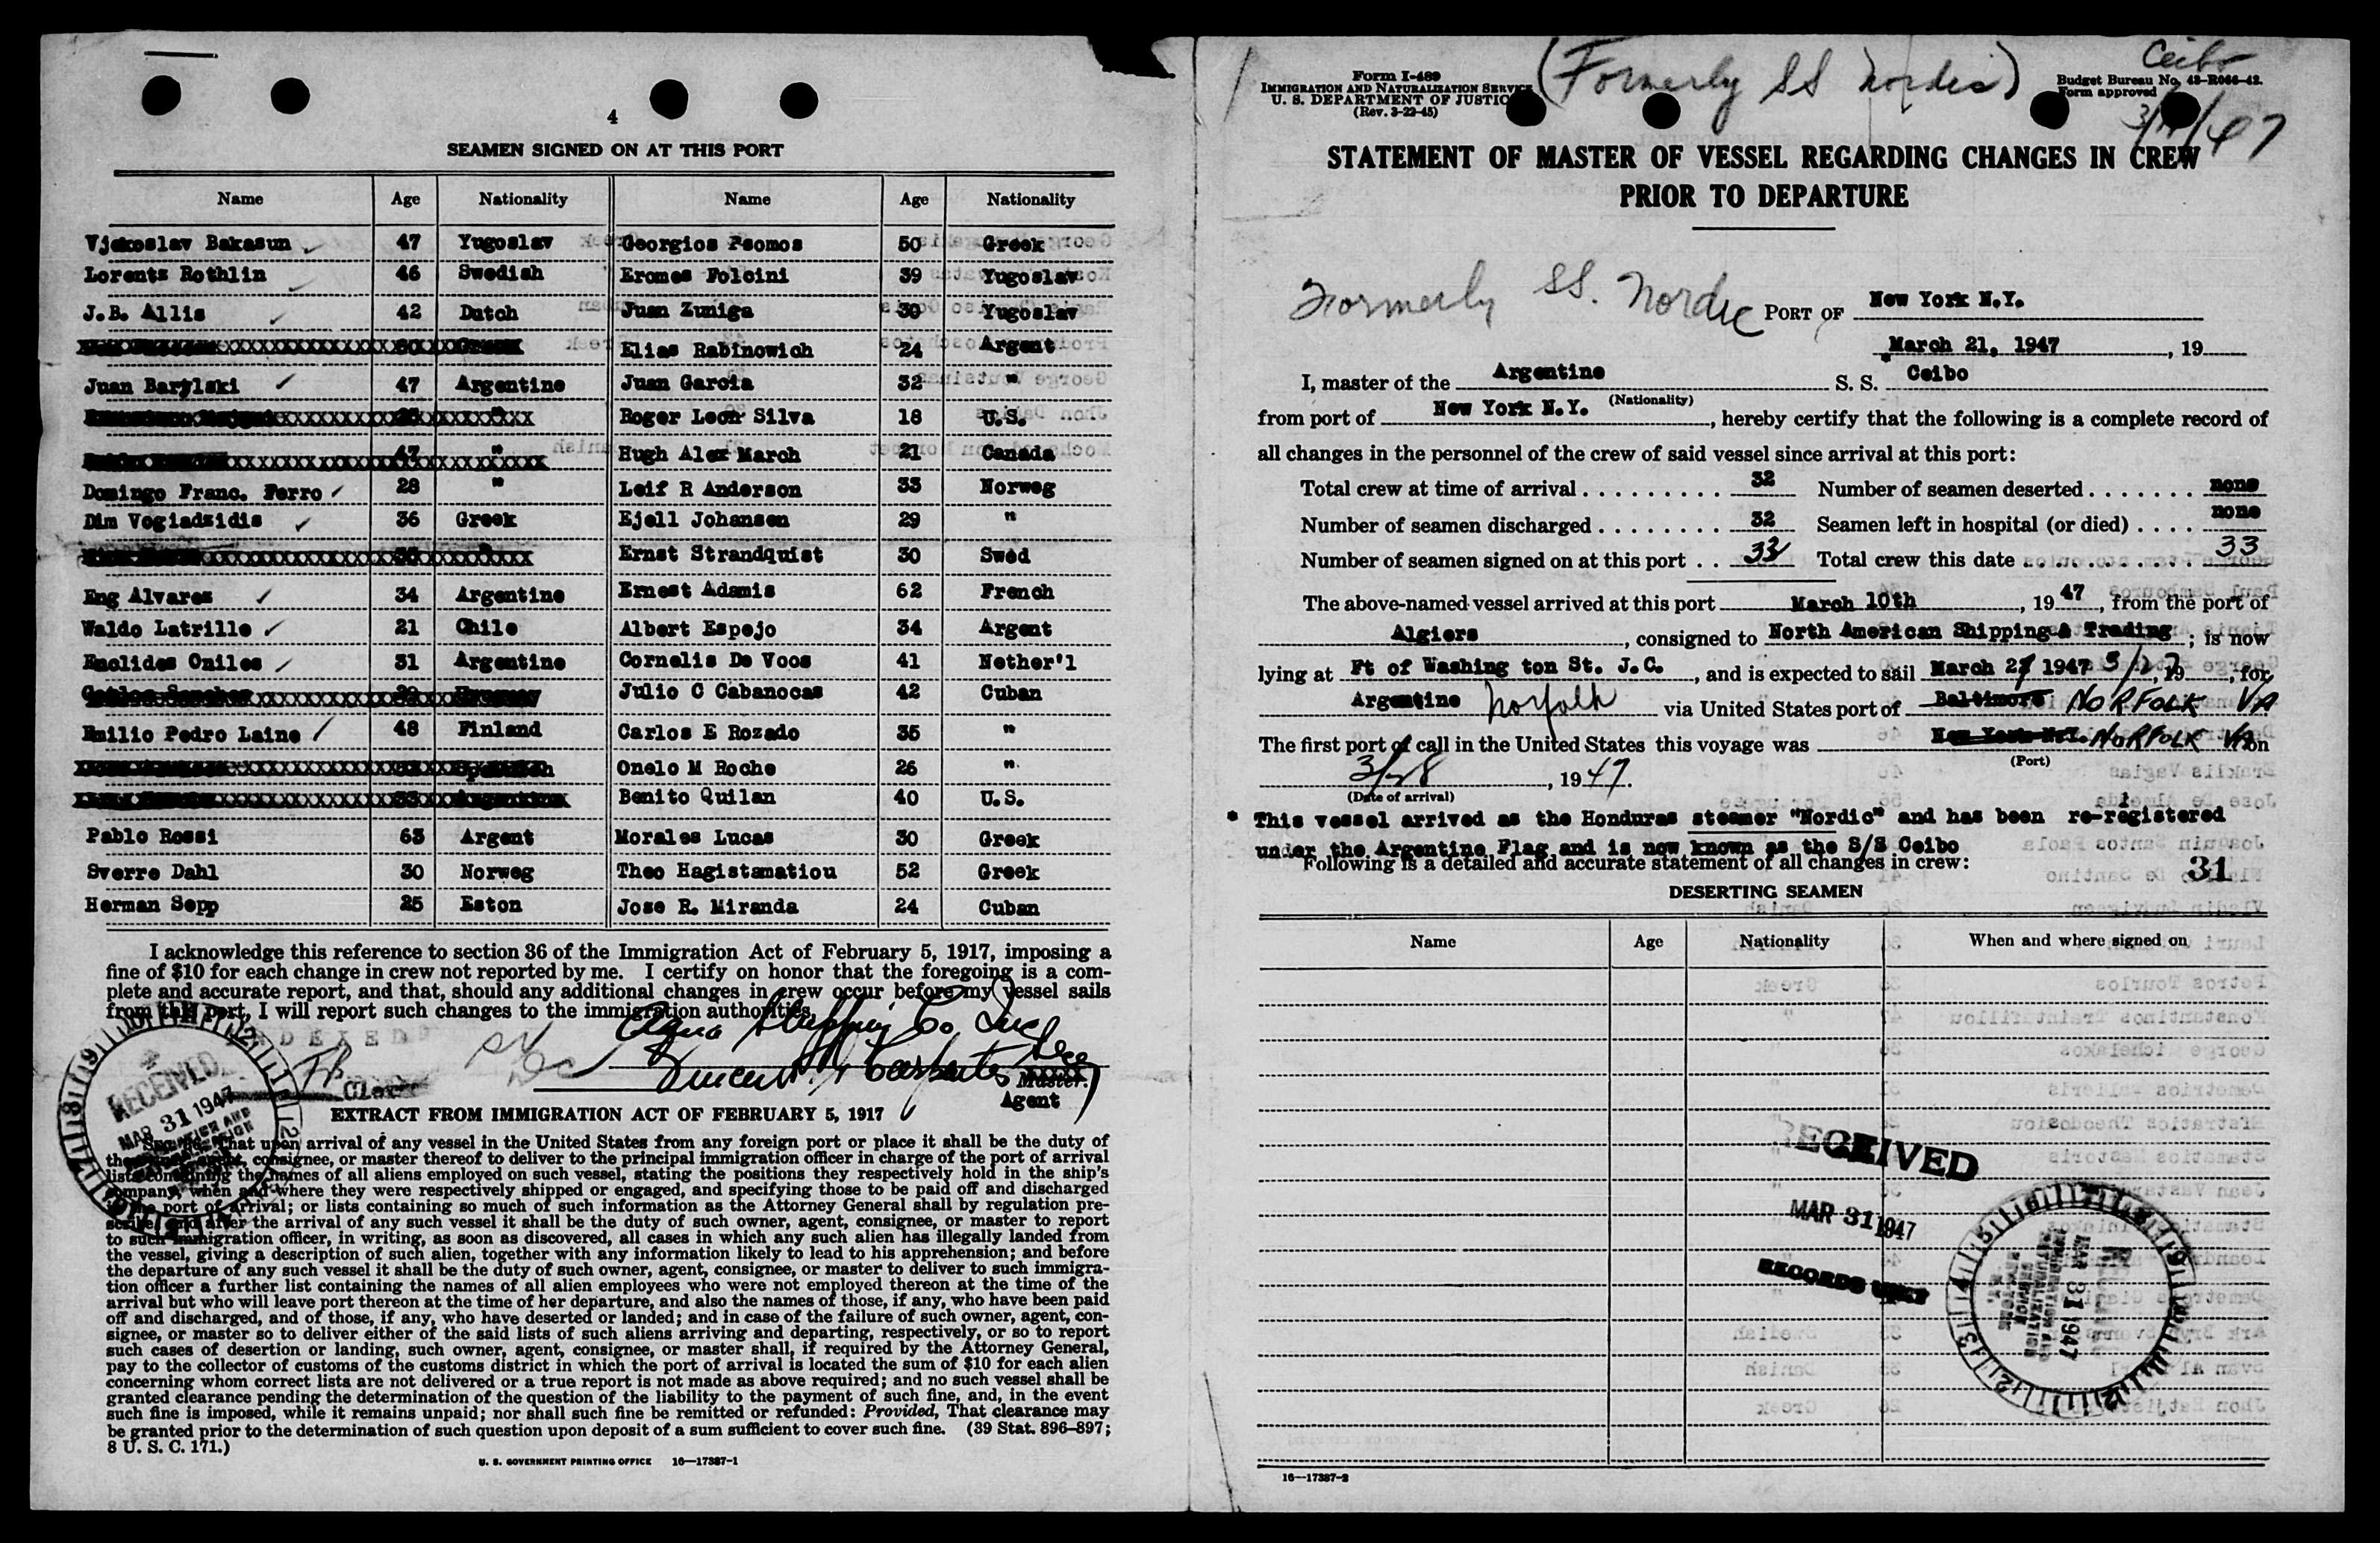 4
SEAMEN SIGNED ON AT THIS PORT
Name Age Nationality Name Age Nationality
Vjekoslav Bakasun 47 Yugoslav Georgios Psomos 50 Greek
Lorentz Rothlin 46 Swedish Eromes Folcini 39 Yugoslav
J.B. Allis 42 Dutch Juan Zuniga 30 Yugoslav
Elias Rabinowich 24 Argent
Juan Barylski 47 Argentine Juan Garcia 32 "
Roger Leon Silva 18 U.S.
47 " Hugh Alex March 21 Canada
Domingo Franc. Ferro 28 " Leif R Anderson 33 Norweg
Dim Vogiadzidis 36 Greek Ejell Johansen 29 "
Ernst Strandquist 30 Swed
Eng Alvarez 34 Argentine Ernest Adamis 62 French
Waldo Latrille 21 Chile Albert Espejo 34 Argent
Euclides Cniles 31 Argentine Cornelis De Voos 41 Nether'l
Julio C Cabanocas 42 Cuban
Emilio Pedro Laine 48 Finland Carlos E Rozado 35 "
Onelo M Roche 26 "
Benito Quilan 40 U.S.
Pablo Rossi 63 Argent Morales Lucas 30 Greek
Sverre Dahl 30 Norweg Theo Hagistamatiou 52 Greek
Herman Sepp 25 Eston Jose R. Miranda 24 Cuban
I acknowledge this reference to section 36 of the Immigration Act of February 5, 1917, imposing a
fine of $10 for each change in crew not reported by me. I certify on honor that the foregoing is a com-
plete and accurate report, and that, should any additional changes in crew occur before my vessel sails
from this port, I will report such changes to the immigration authorities.
INDEXED
Clerk
Master.
Agent
RECEIVED
MAR 31 1947
EXTRACT FROM IMMIGRATION ACT OF FEBRUARY 5, 1917
That upon arrival of any vessel in the United States from any foreign port or place it shall be the duty of
the consignee, or master thereof to deliver to the principal immigration officer in charge of the port of arrival
lists containing the names of all aliens employed on such vessel, stating the positions they respectively hold in the ship's
company, when and where they were respectively shipped or engaged, and specifying those to be paid off and discharged
in the port of arrival; or lists containing so much of such information as the Attorney General shall by regulation pre-
scribe; and after the arrival of any such vessel it shall be the duty of such owner, agent, consignee, or master to report
to such immigration officer, in writing, as soon as discovered, all cases in which any such alien has illegally landed from
the vessel, giving a description of such alien, together with any information likely to lead to his apprehension; and before
the departure of any such vessel it shall be the duty of such owner, agent, consignee, or master to deliver to such immigra-
tion officer a further list containing the names of all alien employees who were not employed thereon at the time of the
arrival but who will leave port thereon at the time of her departure, and also the names of those, if any, who have been paid
off and discharged, and of those, if any, who have deserted or landed; and in case of the failure of such owner, agent, con-
signee, or master so to deliver either of the said lists of such aliens arriving and departing, respectively, or so to report
such cases of desertion or landing, such owner, agent, consignee, or master shall, if required by the Attorney General,
pay to the collector of customs of the customs district in which the port of arrival is located the sum of $10 for each alien
concerning whom correct lists are not delivered or a true report is not made as above required; and no such vessel shall be
granted clearance pending the determination of the question of the liability to the payment of such fine, and, in the event
such fine is imposed, while it remains unpaid; nor shall such fine be remitted or refunded: Provided, That clearance may
be granted prior to the determination of such question upon deposit of a sum sufficient to cover such fine. (39 Stat. 896–897;
8 U. S. C. 171.)
U. S. GOVERNMENT PRINTING OFFICE 16—17387-1
Form I-489
IMMIGRATION AND NATURALIZATION SERVICE
U. S. DEPARTMENT OF JUSTICE
(Rev. 3-22-45)
(Formerly SS Nordic)
Ceibo
Budget Bureau No. 43-R066-42.
Form approved
STATEMENT OF MASTER OF VESSEL REGARDING CHANGES IN CREW
PRIOR TO DEPARTURE
Formerly SS. Nordic PORT OF New York N.Y.
March 21, 1947, 19
I, master of the Argentine S. S. * Ceibo
(Nationality)
from port of New York N.Y., hereby certify that the following is a complete record of
all changes in the personnel of the crew of said vessel since arrival at this port:
Total crew at time of arrival 32 Number of seamen deserted none
Number of seamen discharged 32 Seamen left in hospital (or died) none
Number of seamen signed on at this port 33 Total crew this date 33
The above-named vessel arrived at this port March 10th, 1947, from the port of
Algiers, consigned to North American Shipping & Trading; is now
lying at Ft of Washing ton St. J.C., and is expected to sail March 27 1947 3/27, 19, for
Argentine Norfolk via United States port of Baltimore NORFOLK VA
The first port of call in the United States this voyage was New York N.Y. NORFOLK VA on
(Port)
3/28, 1947.
(Date of arrival)
* This vessel arrived as the Honduras steamer "Nordic" and has been re-registered
under the Argentine Flag and is now known as the S/S Ceibo
Following is a detailed and accurate statement of all changes in crew:
31
DESERTING SEAMEN
Name Age Nationality When and where signed on
RECEIVED
MAR 31 1947
RECORDS UNIT
MAR 31 1947
16—17387-2